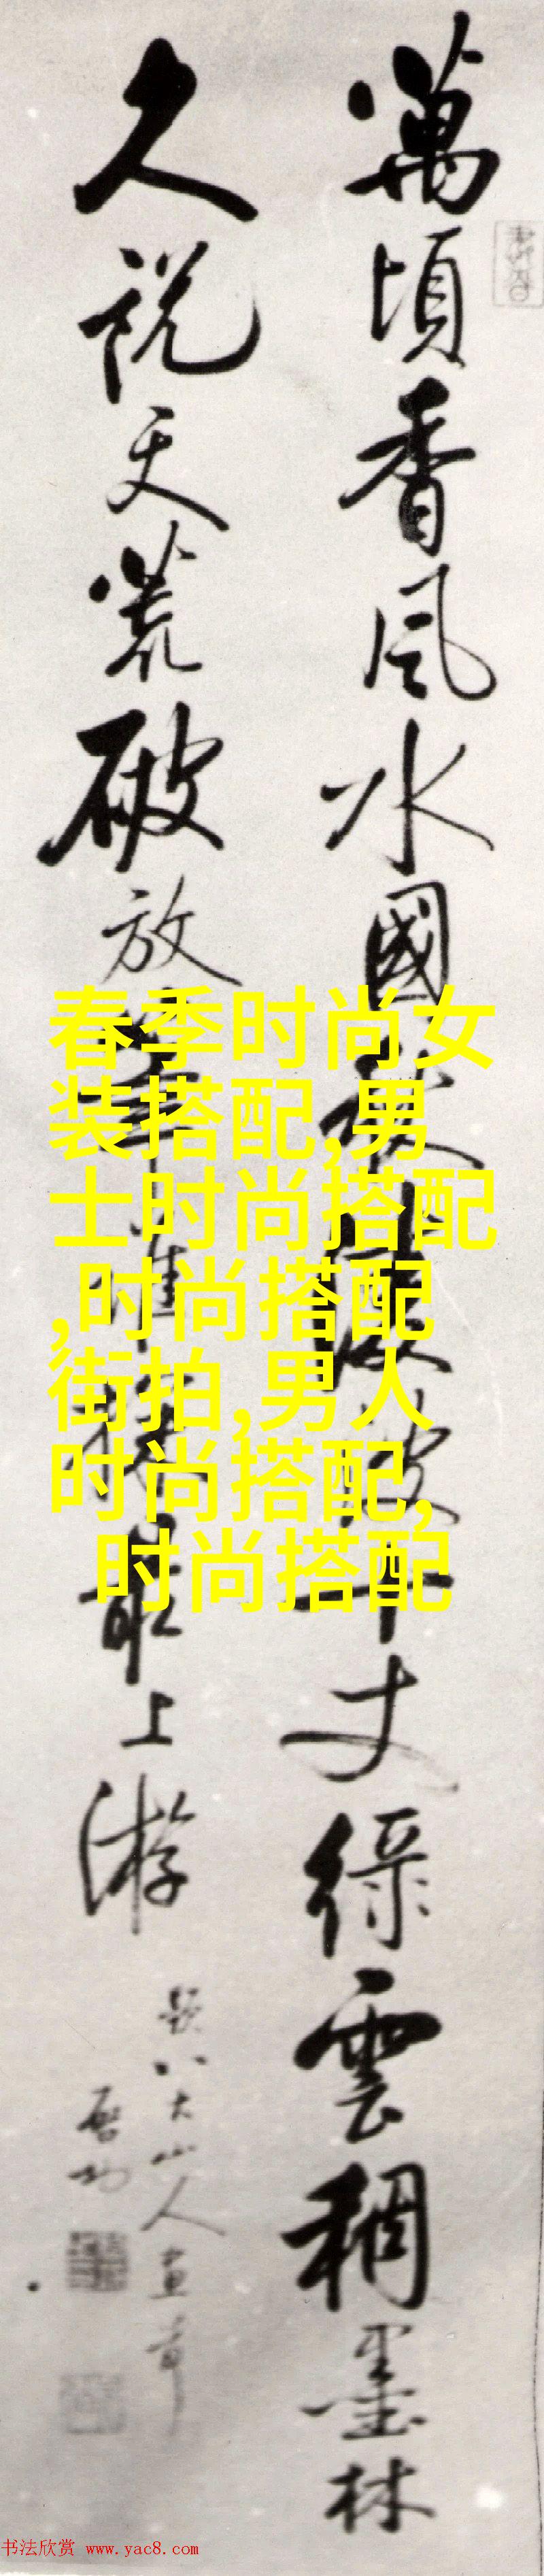 萬頃香風水國秋波千丈綠雲稠墨林
久說天荒破放誰最上游
題八大山人畫
啓功
春季时尚女
装搭配,男
士时尚搭配
,时尚搭配
街拍,男人
时尚搭配,
时尚搭配
书法欣赏 www.yac8.com